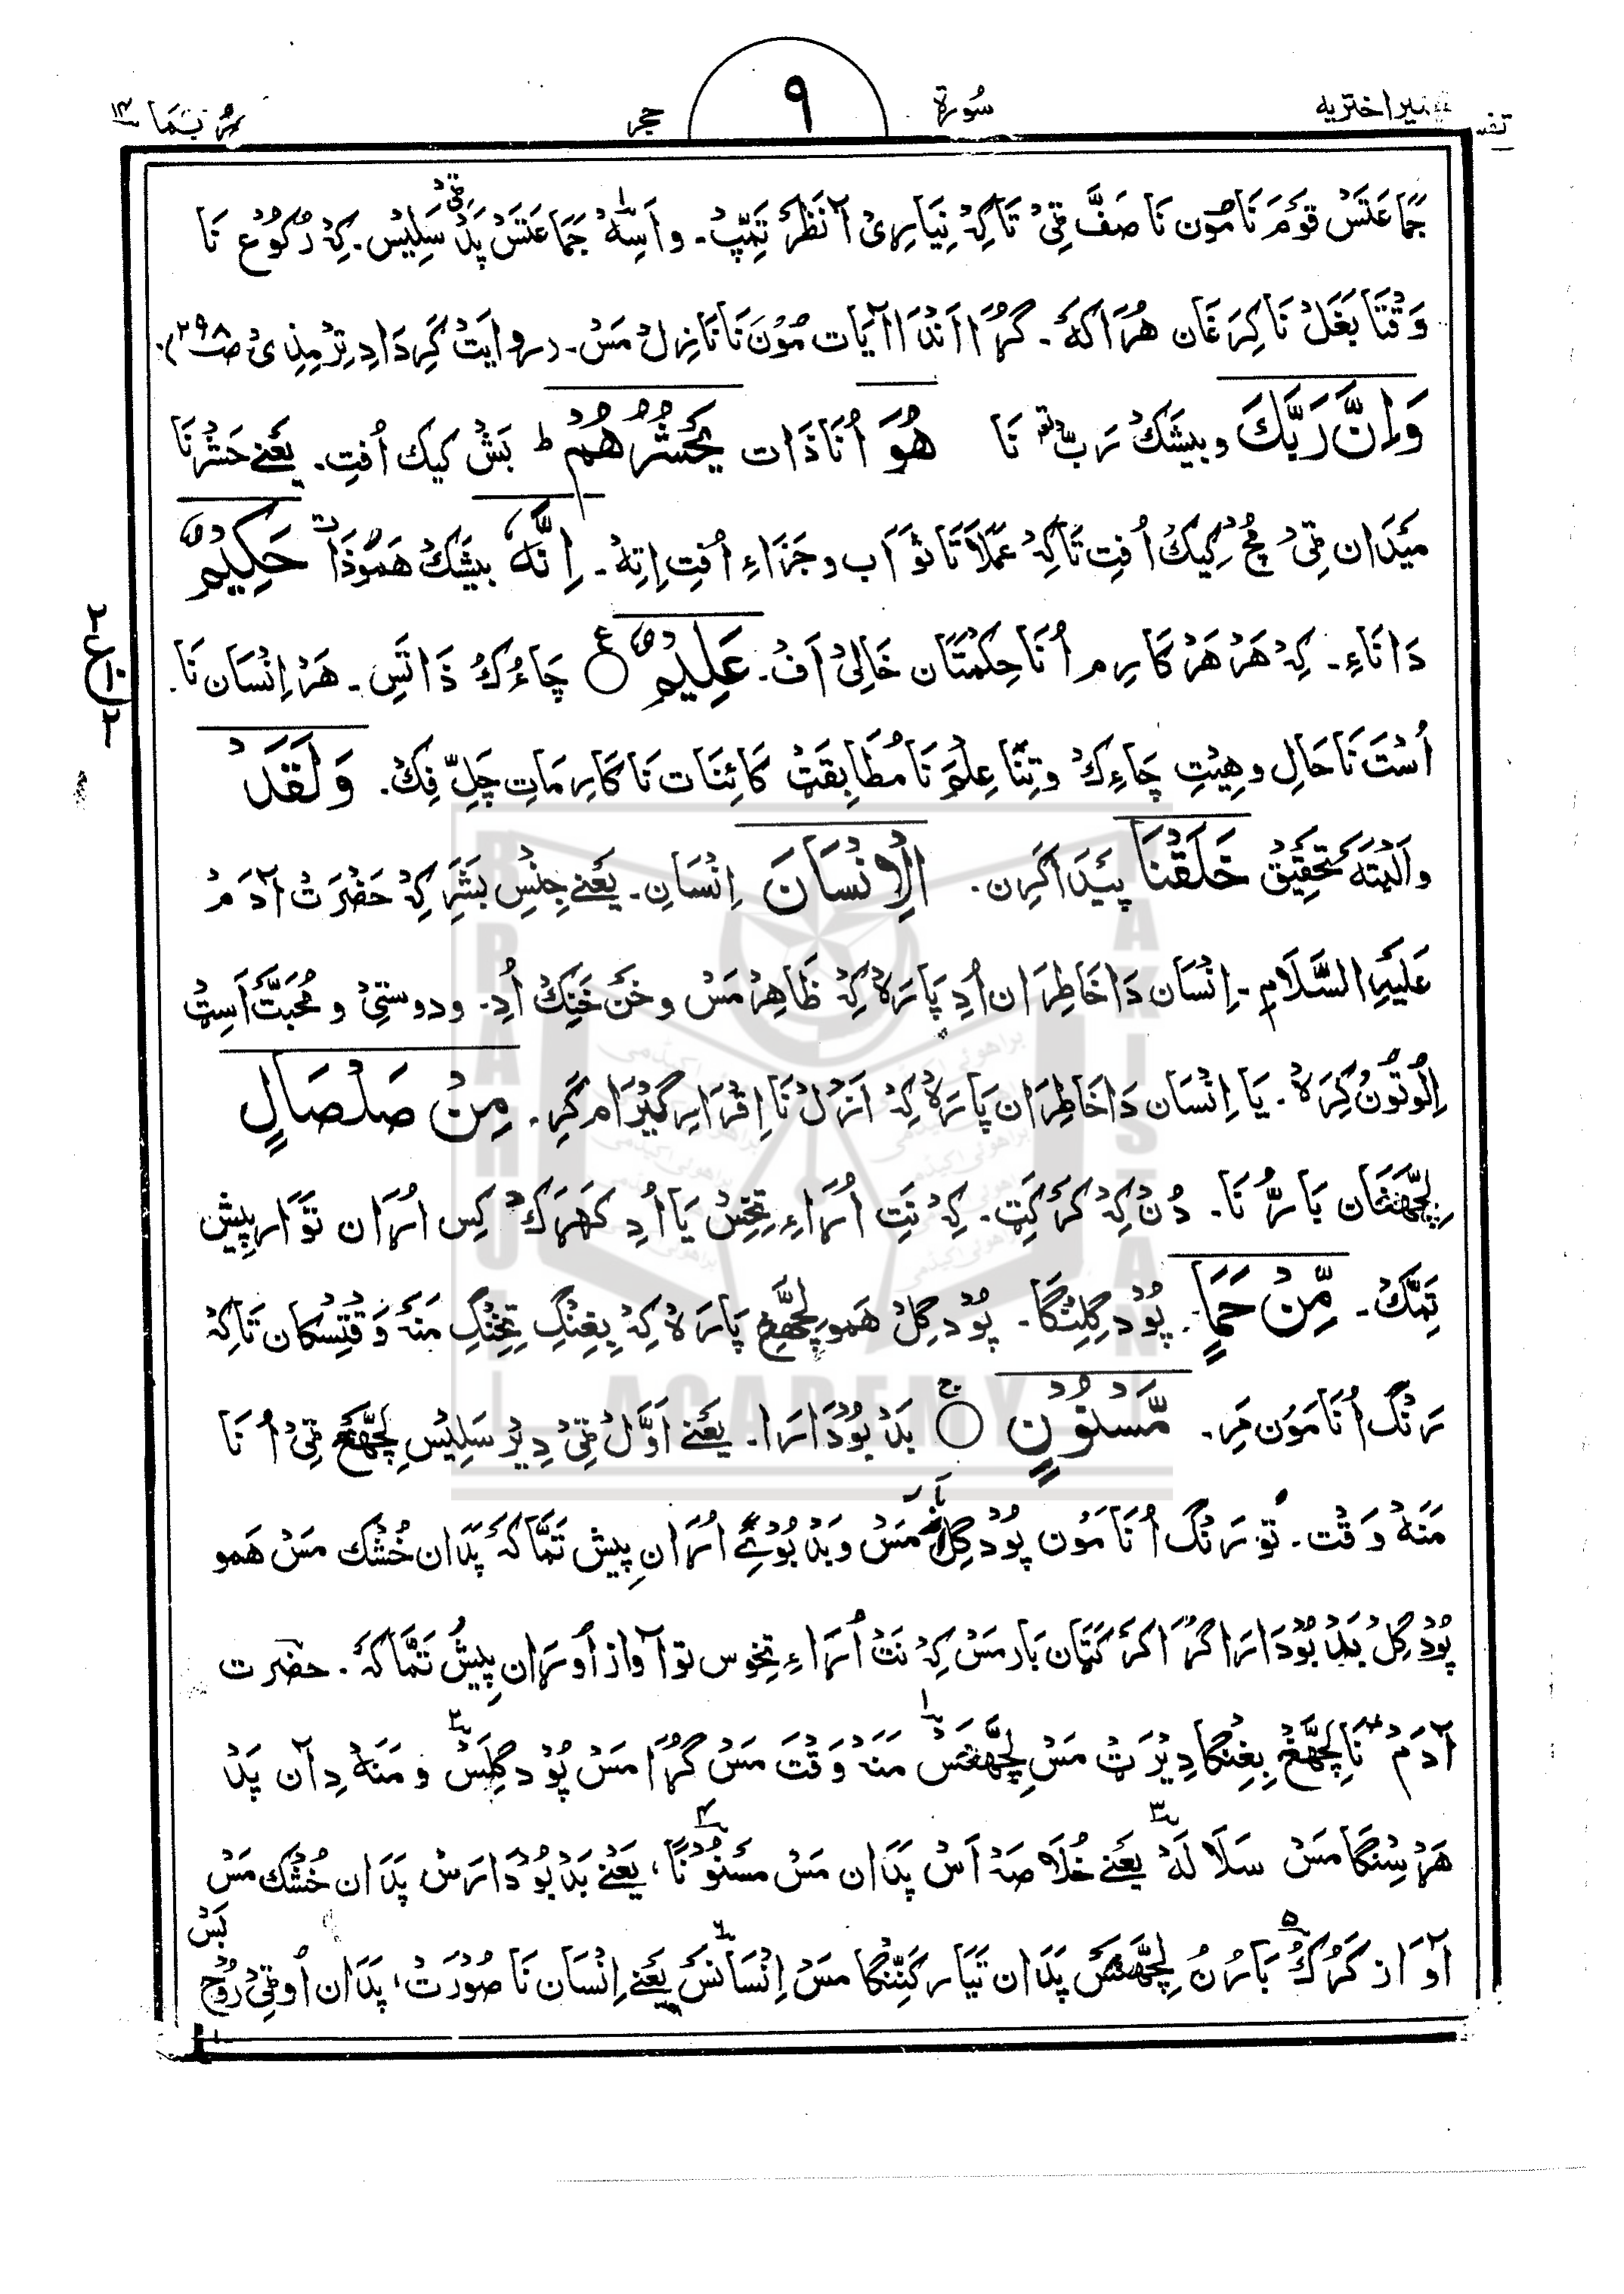 تفسیر اختریه سُورة ٩ حجر رُبَمَا ١٤
جَمَاعَتَسْ قَوْمَ نَا مُوْن نَا صَفَّ ٹِیْ تَا کِہْ نِیَارِیْ آ نَظَرْ تَمِّپْ۔ و اَسِہْ جَمَاعَتَسْ پَدْ ٹِیْ سَلِیْس۔ کِہْ رُکُوْع نَا
وَقْتَا بَغَلْ نَا کِرَغَان هُرَاکَہ۔ گُڑَا اَنْدَا آیَات مُوْنَ نَا نَازِلْ مَسْ۔ (روایَتْ گَرِدَادِ تِرْمِذِیْ صـ٢٩٨)
وَاِنَّ رَبَّكَ و بیشَكْ رَبّ نَا هُوَ اُنَا ذَات یَحْشُرُهُمْ ط بَشْ کیك اُفتِ۔ یَعْنے حَشْرْ نَا
مَیْدَان ٹِیْ مُچْ کِیكْ اُفتِ تَاکِہْ عَمَلَاتَا ثَوَاب و جَزَاءِ اُفتِ اِتِہْ۔ اِنَّهٗ بیشَكْ هَمُوْ ذَات حَکِیْمٌ
دَانَاءِ۔ کِہْ هَرْ هَرْ کَارِم اُنَا حِکْمَتَان خَالِیْ اَفْ۔ عَلِیْمٌ ○ چَاءُکْ ذَاتَسِ۔ هَرْ اِنْسَان نَا۔
اُسْتَ نَا حَالِ و هِیْتِ چَاءِكْ و تِنَا عِلْمَ نَا مُطَابِقَتْ کَائِنَات نَا کَارِمَاتِ چَلِّ فِكْ۔ وَلَقَدْ
و اَلْبَتَّہ تَحْقِیْق خَلَقْنَا پَیْدَا کَرِن۔ الْاِنْسَانَ اِنْسَانِ۔ یَعْنے جِنْسِ بَشَرِ کِہْ حَضْرَتْ آدَمْ
عَلَیْهِ السَّلَام۔ اِنْسَان دَا خَاطِرَان اُدِ پَارَہْ کِہْ ظَاهِرْ مَسْ و خَنْ خَنِكْ اُدِ۔ و دوستِیْ و مُحَبَّتْ اَسِٹ
اِلُوْتُوْنْ کِرَہْ۔ یَا اِنْسَان دَا خَاطِرَان پَارَہْ کِہْ اَزَلْ نَا اِقْرَارِ گِیْرَام گَرِ۔ مِنْ صَلْصَالٍ
لِچْهَغَان بَارُ نَا۔ دُنْ کِہْ کَرَكِتِ۔ کِہْ نَتِ اُرَاءِ تِخِسْ یَا اُدِ کَهَرَكْ کِس اُرَان تَوَار پِیش
تَمِّكْ۔ مِّنْ حَمَاٍ۔ پُوْدْ گِلِنْگَا۔ پُوْدْ گِلْ هَمُو لِچْهَغِ پَارَہْ کِہْ بِغِنْگِ تِخِنْگِ مَنَہ وَقْتِسْکَان تَاکِہْ
رَنْگ اُنَا مَوْن مَرِ۔ مَّسْنُوْنٍ ○ بَدْ بُوْدَارَا۔ یَعْنے اَوَّلْ ٹِیْ دِیْرْ سَلِیْس لِچْهَغَ ٹِیْ اُنَا
مَنَہْ وَقْت۔ تَوْ رَنْگ اُنَا مَوْن پُوْدْ گِلْ مَسْ و بَدْ بُوْئے اُرَان پِیش تَمَّاکَہ پَدَان خُشْك مَسْ هَمو
پُوْدْ گِلْ بَدْ بُوْدَارَا گُڑَا کَرَ کَتَان بَار مَسْ کِہْ نَتْ اُرَاءِ تِخُوس تو آواز اُورَان پِیشْ تَمَّاکَہ۔ حضرت
آدَمْ نَا لِچْهَغْ بِغِنْگَا دِیْرَ ٹ مَسْ لِچْهَغَسْ مَنَہْ وَقْتَ مَسْ گُڑَا مَسْ پُوْدْ گِلَسْ و مَنَہْ دِ آن پَدْ
هَرْسِنْگَا مَسْ سَلَالَہْ یَعْنے خُلَاصَہْ اَسْ پَدَان مَسْ مَسْنُوْنًا، یَعْنے بَدْ بُوْدَارَسْ پَدَان خُشْك مَسْ بَسْ
آوَاز کَرُكْ بَارُنْ لِچْهَغَسْ پَدَان تَیَّار کَنِنْگَا مَسْ اِنْسَانَسْ یَعْنے اِنْسَان نَا صُوْرَتْ، پَدَان اُو ٹِیْ رُوْح